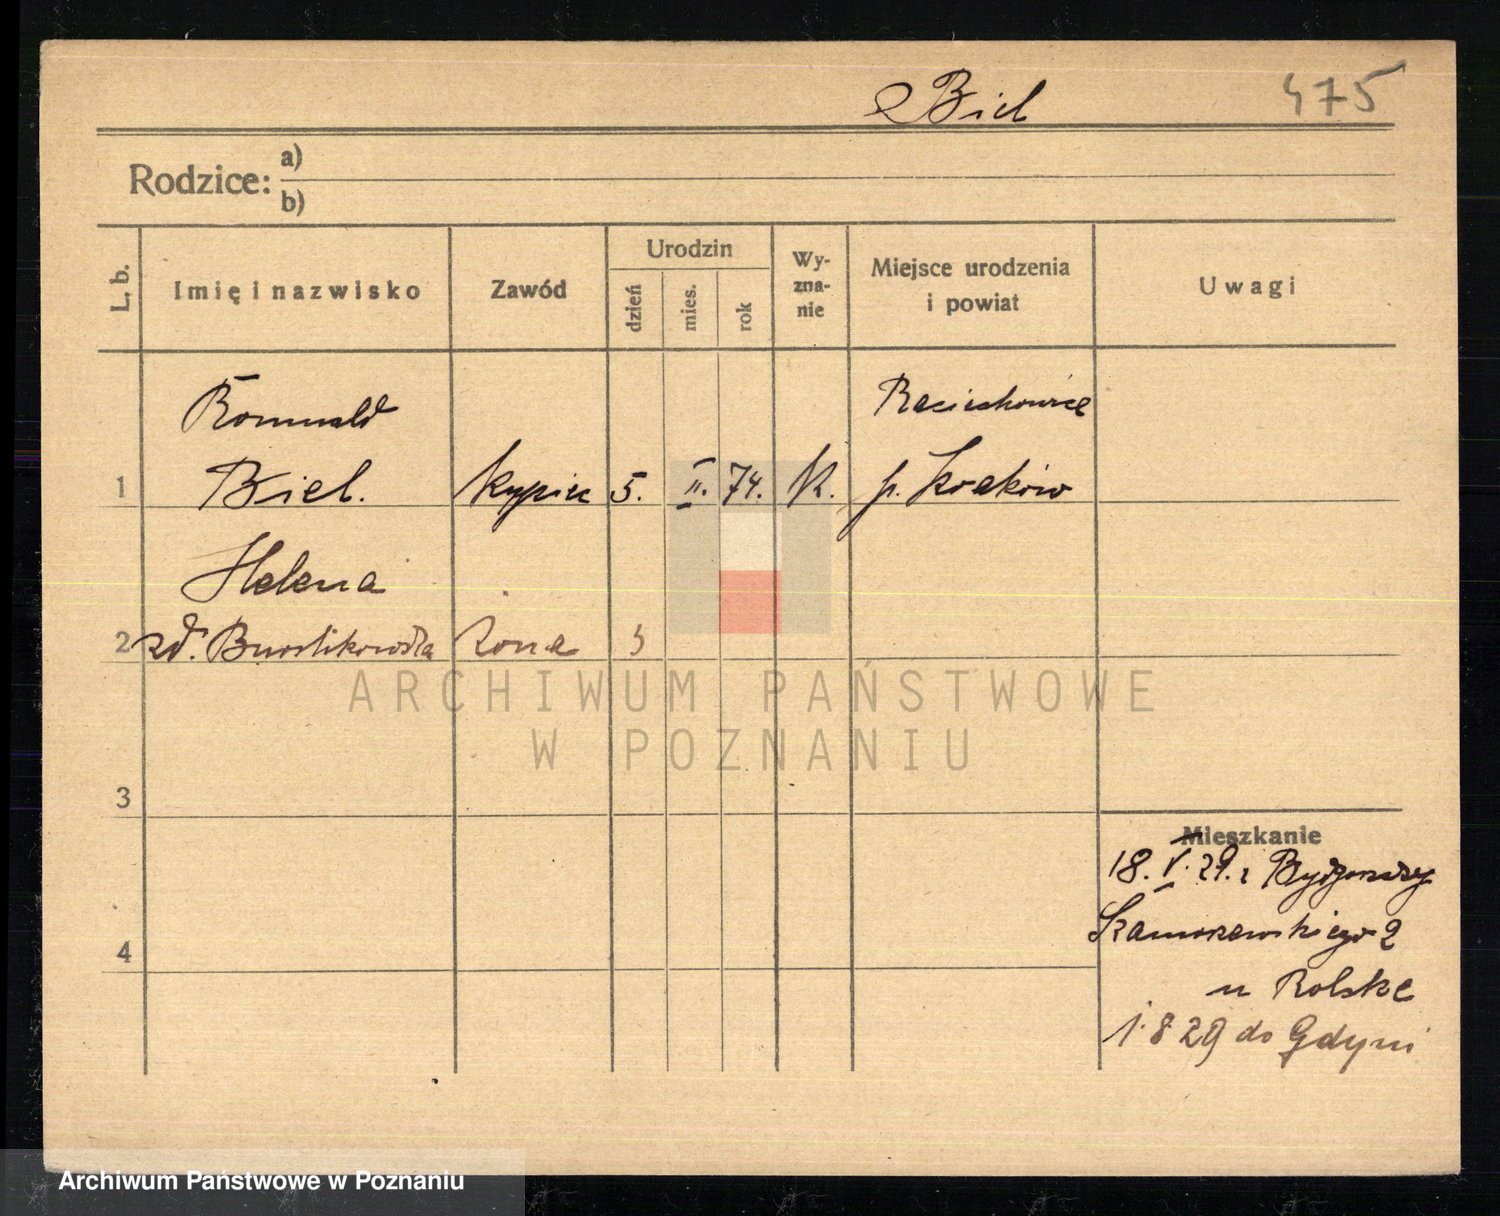 Biel 475
Rodzice: a)
b)
L. b. Imię i nazwisko Zawód Urodzin dzień mies. rok Wy-zna-nie Miejsce urodzenia i powiat Uwagi
Romuald Raciechowice
1 Biel. kupiec 5. II. 74. K. p. Kraków
Helena
2 zd. żona
ARCHIWUM PAŃSTWOWE
W POZNANIU
3
Mieszkanie
18. V. 29. z Bydgoszczy
4
2
u Rolske
1 8 29 do Gdyni
Archiwum Państwowe w Poznaniu